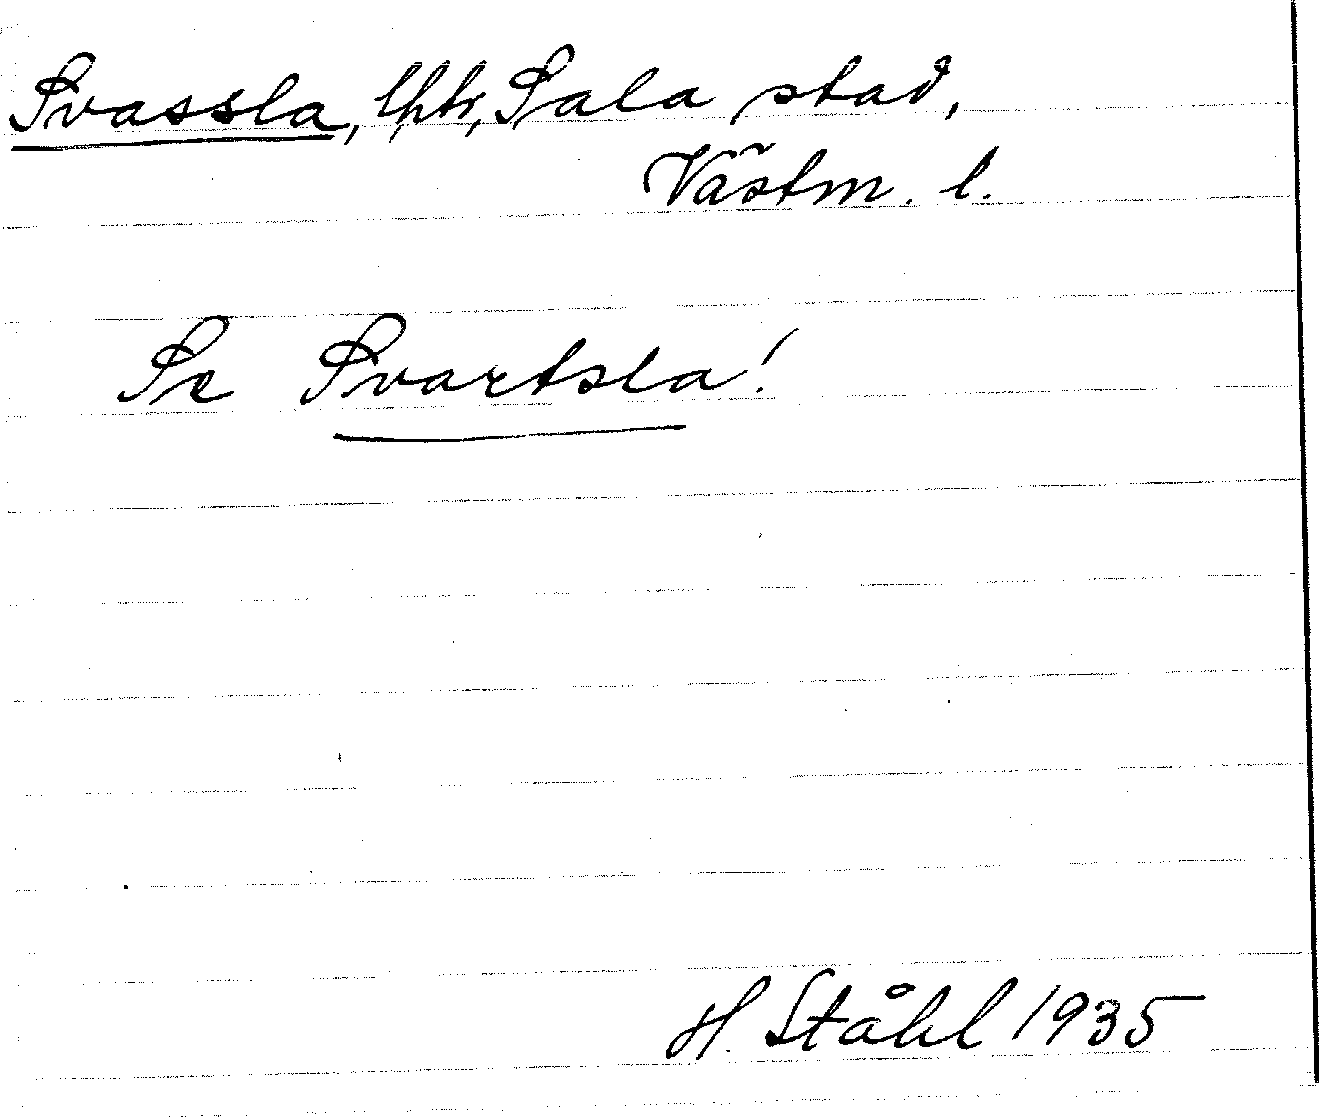 Svassla, lht, Sala stad,
Västm. l.
Se Svartsla!
H. Ståhl 1935